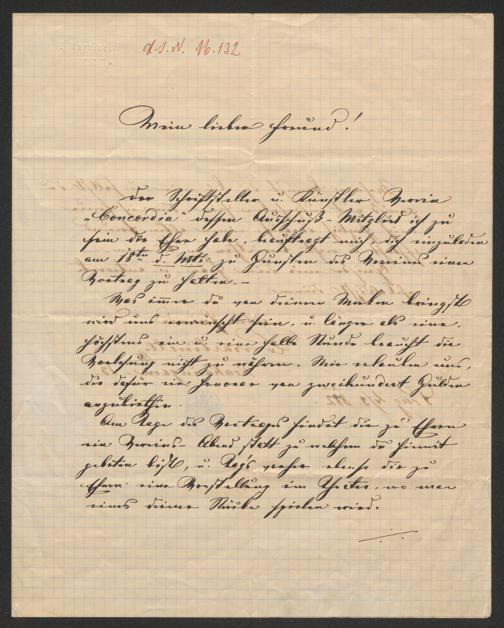 d. S. N. 16.132
Mein lieber Freund!
Der Schriftsteller u. Künstler Verein
„Concordia" dessen Ausschuß-Mitglied ich zu
sein die Ehre habe, beauftragt mich, dich einzuladen
am 18ten d. Mts. zu Gunsten des Vereins einen
Vortrag zu halten.–
Was immer du von deinen Werken bringst
wird uns erwünscht sein, u. länger als eine,
höchstens ein u. eine halbe Stunde braucht die
Vorlesung nicht zu währen. Wir erlauben uns,
dir dafür ein Honorar von zweihundert Gulden
anzubiethen.
Am Tage des Vortrages findet dir zu Ehren
ein Vereins-Abend statt zu welchem du hiemit
gebeten bist, u. Tags vorher ebenso dir zu
Ehren eine Vorstellung im Theater, wo man
eines deiner Stücke spielen wird.